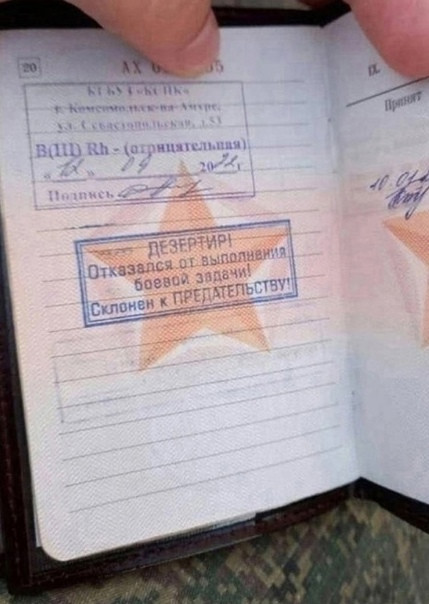 20
АХ
IX.
КГБУЗ «КСПК»
г. Комсомольск-на-Амуре,
ул. Севастопольская, д.53
B(III) Rh - (отрицательная)
Принят
20 г
Подпись
ДЕЗЕРТИР!
Отказался от выполнения
боевой задачи!
Склонен к ПРЕДАТЕЛЬСТВУ!